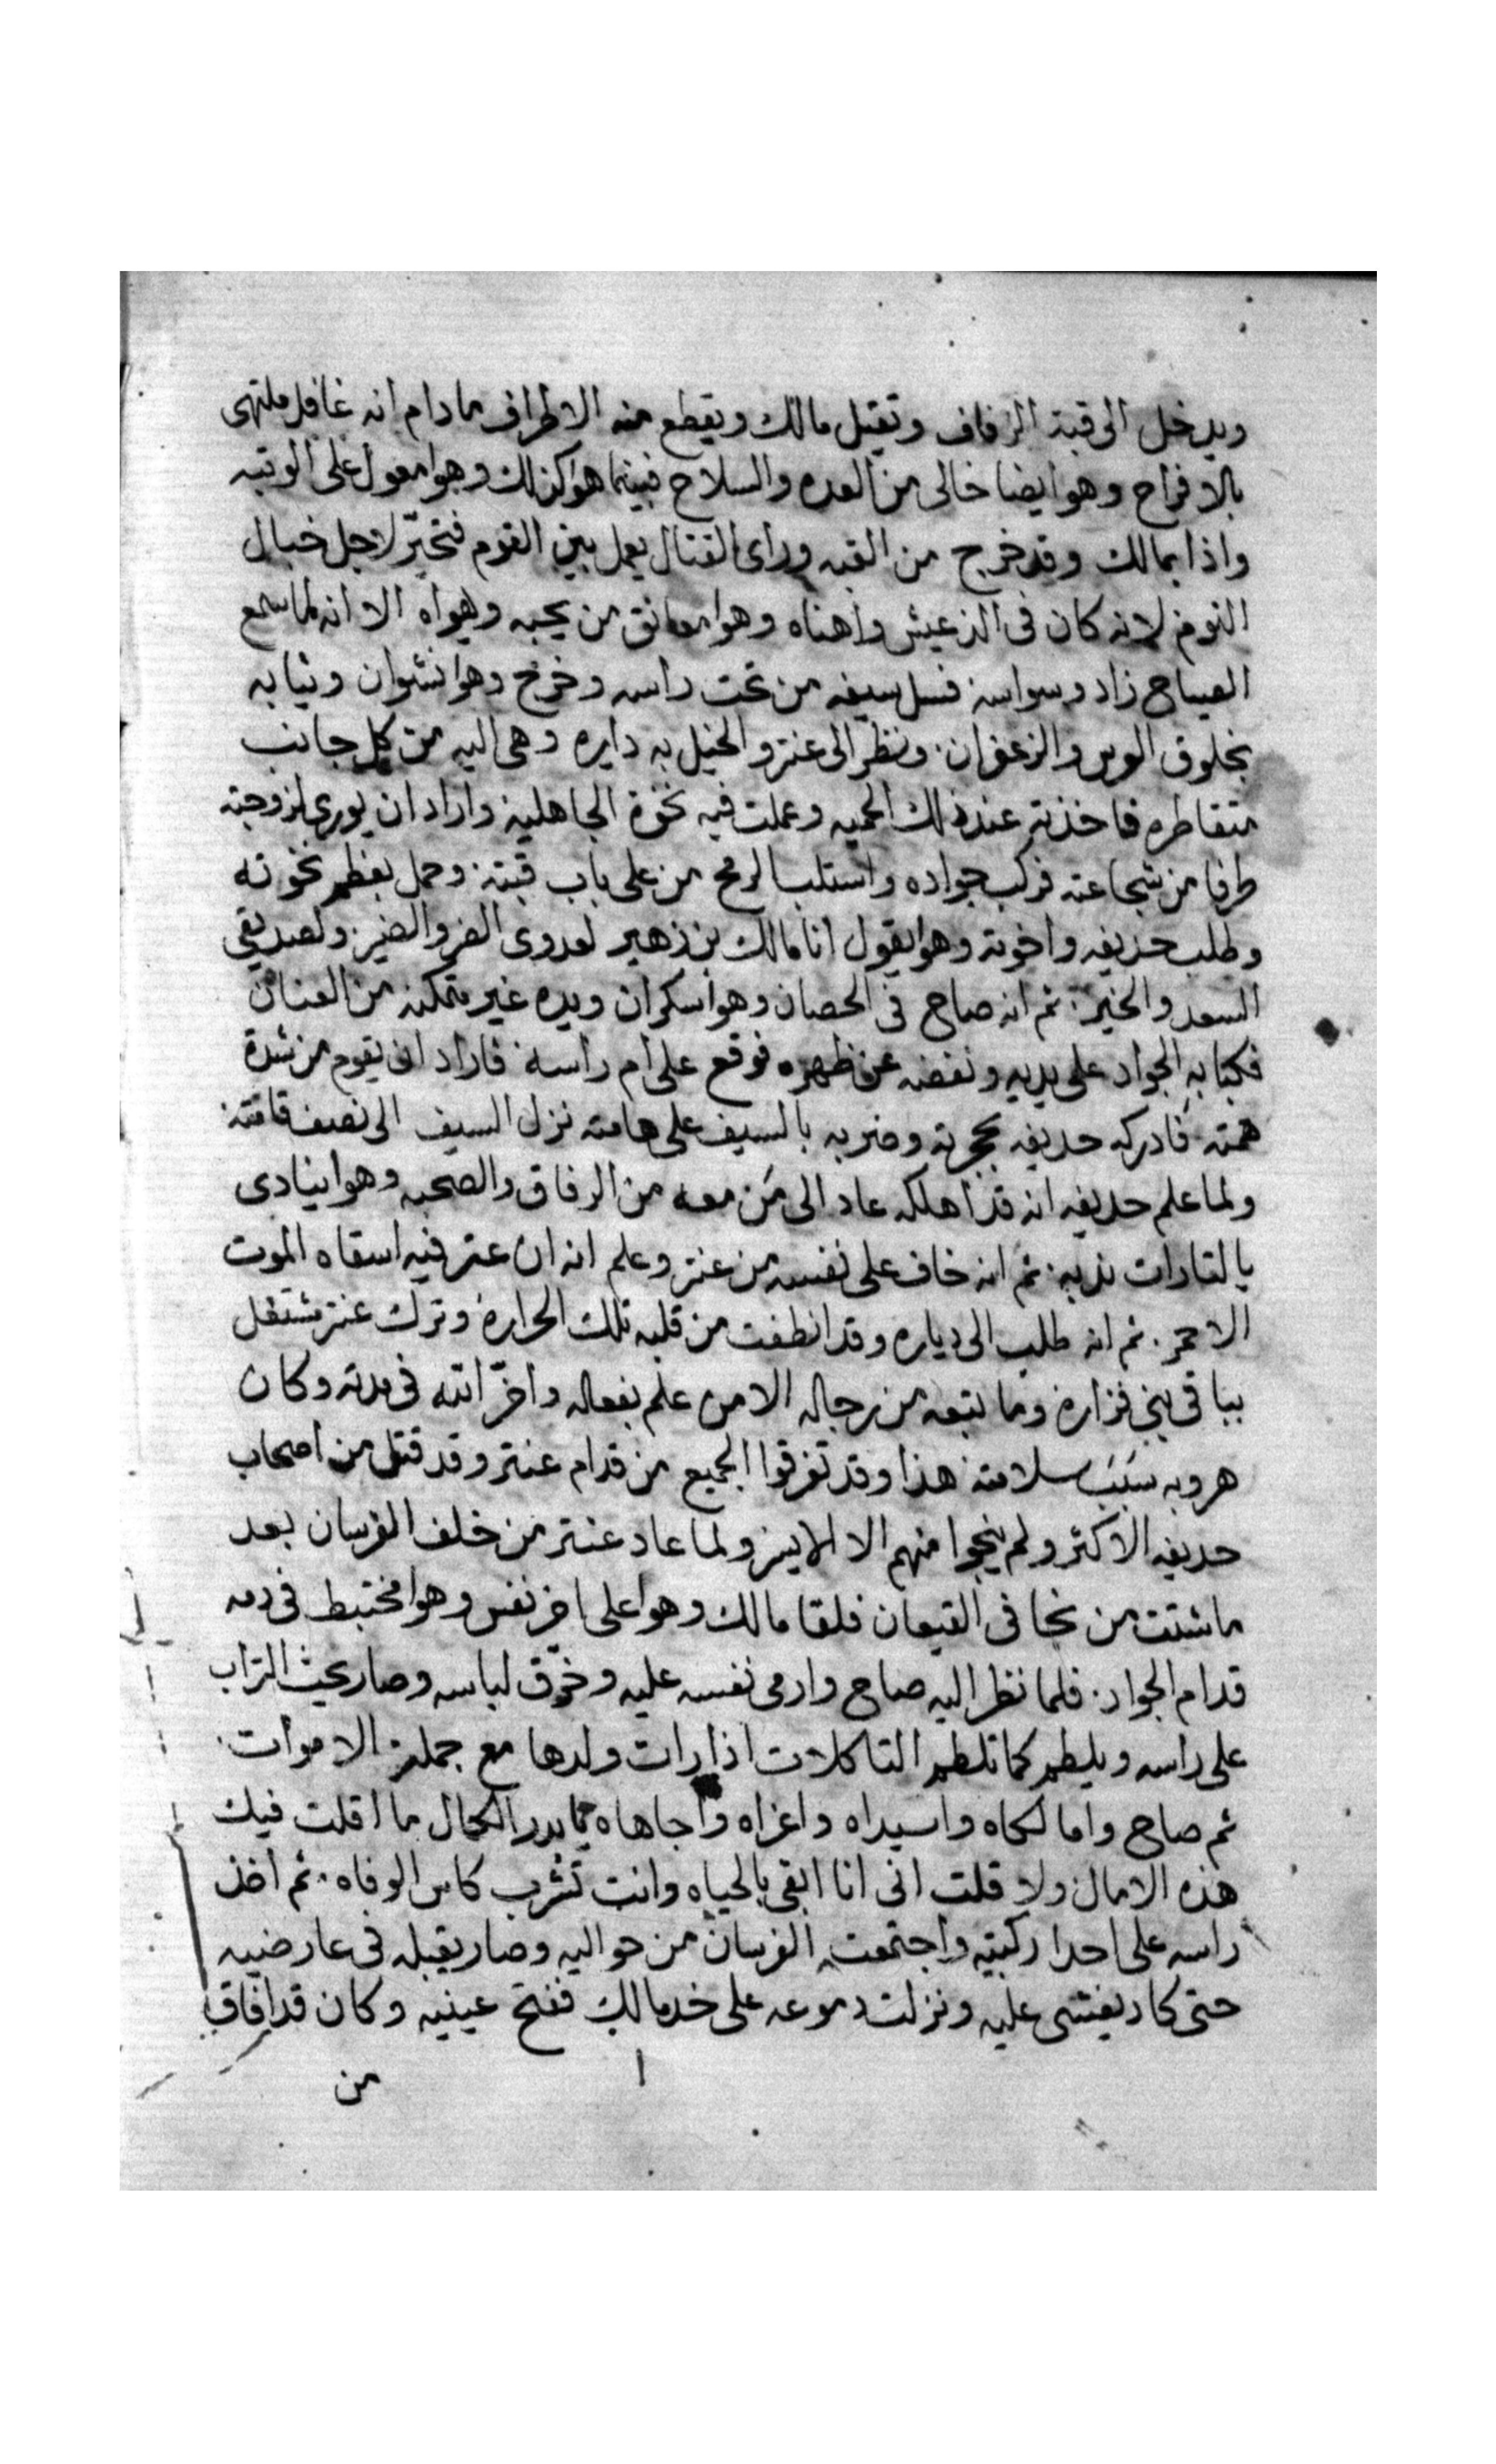 ويدخل الى قبة الزفاف وتقبل مالك ويقطع منه الاطراف مادام انه غافل ملتهى
بالافراح وهو ايضا خالى من العده والسلاح فبينما هوا كذلك وهوا معول على الوتبه
واذا بمالك وقد خرج من القبه وراى القتال يعمل بين القوم فتحيّر لاجل خبال
النوم لانه كان فى الذ عيش واهناه وهوا معانق من يحبه ويهواه الا انه لما سمع
الصياح زاد وسواسه فسل سيفه من تحت راسه وخرج وهوا نشوان وثيابه
بخلوق الورس والزعفران. ونظر الى عنتر والخيل به دايره وهى اليه من كل جانب
متقاطره فاخذته عند ذلك الحميه وعملت فيه نخوة الجاهلية واراد ان يورى لزوجته
طرفا من شجاعته فركب جواده واستلب الرمح من على باب قبته. وحمل بعظم نخوته
وطلب حذيفه واخوته وهوا يقول انا مالك بن زهير لعدوى الضر والضير. ولصديقى
السعد والخير. ثم انه صاح فى الحصان وهوا سكران ويده غير متمكنه من العنان
فكبا به الجواد على يديه ونفضه عن ظهره فوقع على ام راسه. فاراد ان يقوم من شدة
همته. فادركه حديفه بحجرته وضربه بالسيف على هامته نزل السيف الى نصف قامته.
ولما علم حديفه انه قد اهلكه عاد الى من معه من الرفاق والصحبه وهوا ينادى
يالتارات ندبه. ثم انه خاف على نفسه من عنتر وعلم انه ان عتر فيه اسقاه الموت
الاحمر. ثم انه طلب الى دياره وقد انطفت من قلبه تلك الحراره وترك عنتر مشتغل
بباقى بنى فزاره وما تبعه من رجاله الا من علم بفعاله واخّر الله فى مدته وكان
هروبه سبب سلامته هذا وقد تفرقوا الجميع من قدام عنتر وقد قتل من اصحاب
حديفه الاكثر ولم ينجوا منهم الا الايسر ولما عاد عنتر من خلف الفرسان بعد
ما شتت من نجا فى القيعان فلقا مالك وهوا على اخر نفس وهوا مختبط فى دمه
قدام الجواد. فلما نظر اليه صاح وارمى نفسه عليه وخرّق لباسه وصار يحث التراب
على راسه ويلطم كما تلطم التاكلات اذا رات ولدها مع جملة الاموات.
ثم صاح وامالكاه واسيداه واعزاه واجاهاه يا بدر الكمال ما اقلت فيك
هذه الامال ولا قلت انى انا ابقى بالحياه وانت تشرب كاس الوفاه. ثم اخذ
راسه على احدا ركبتيه واجتمعت الفرسان من حواليه وصار يقبله فى عارضيه
حتى كاد يغشى عليه ونزلت دموعه على خد مالك ففتح عينيه وكان قد افاق
من